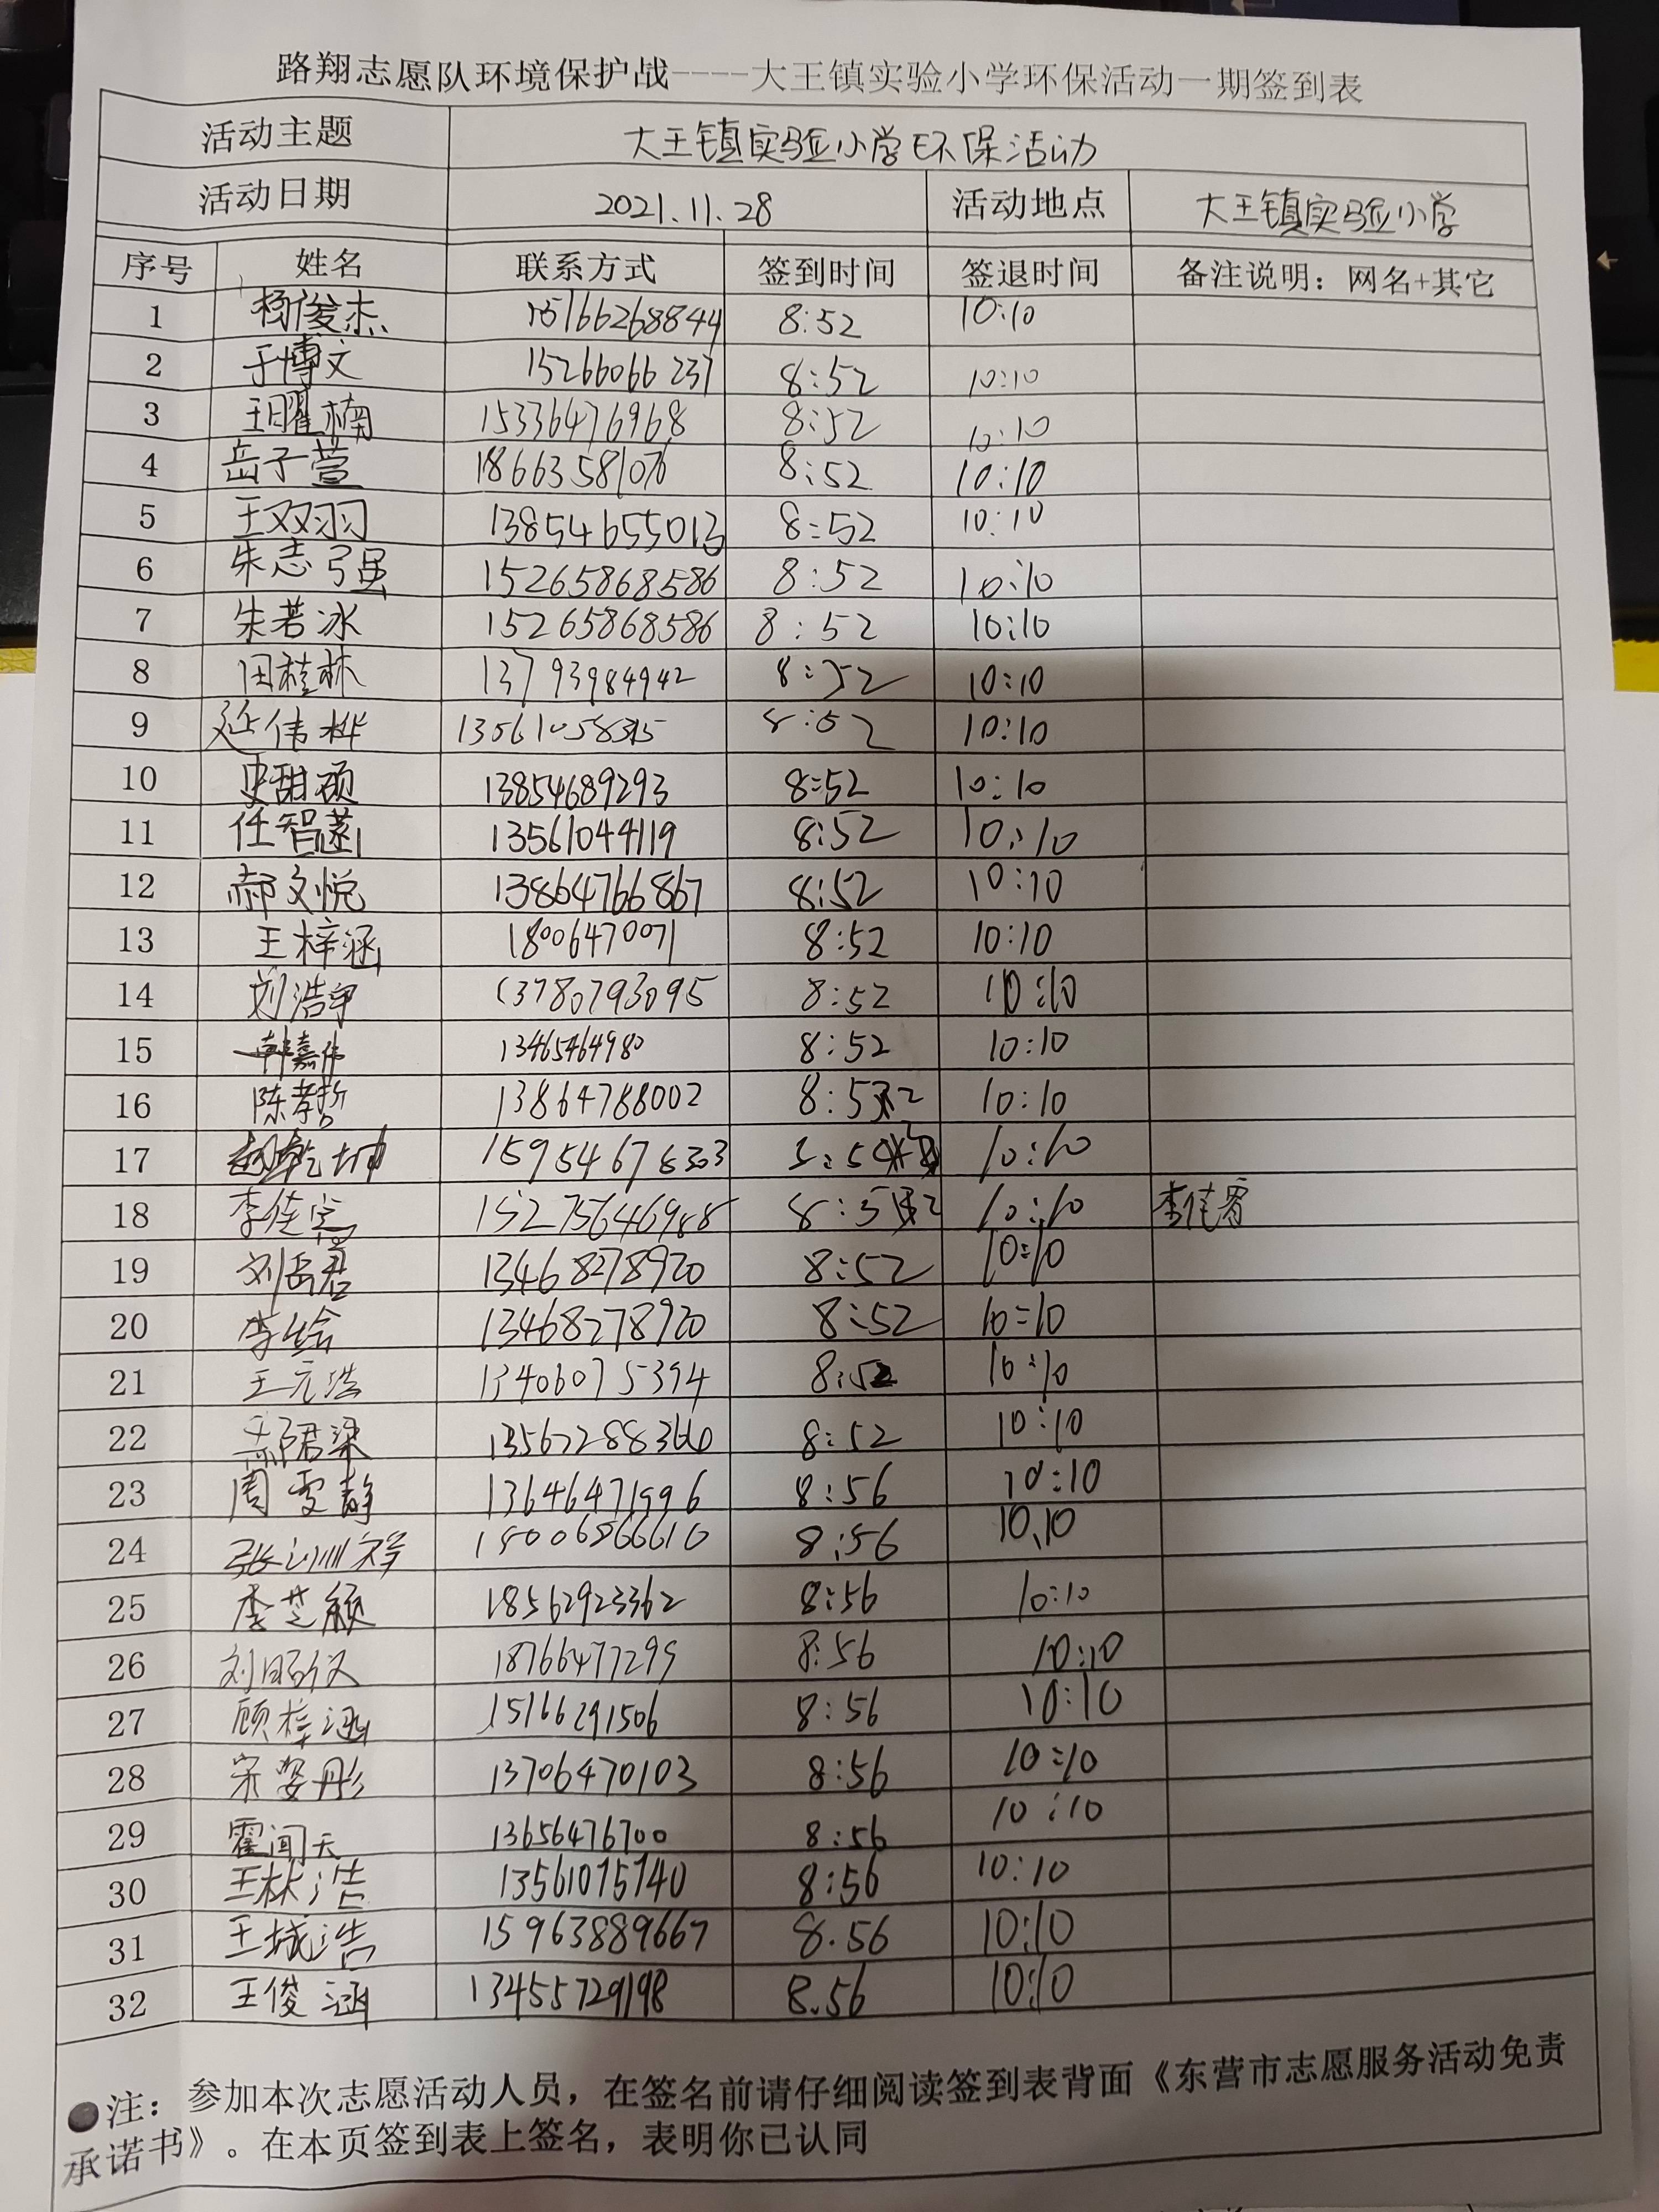 路翔志愿队环境保护战----大王镇实验小学环保活动一期签到表
活动主题 大王镇实验小学环保活动
活动日期 2021.11.28 活动地点 大王镇实验小学
序号 姓名 联系方式 签到时间 签退时间 备注说明：网名+其它
1 杨俊杰 15166268844 8:52 10:10
2 于博文 15266066237 8:52 10:10
3 王曜楠 15336476968 8:52 10:10
4 岳子萱 18663581076 8:52 10:10
5 王双羽 13854655013 8:52 10:10
6 朱志强 15265868586 8:52 10:10
7 朱若冰 15265868586 8:52 10:10
8 田桂林 13793984942 8:52 10:10
9 延伟桦 8:52 10:10
10 史甜硕 13854689293 8:52 10:10
11 任智 13561044119 8:52 10:10
12 郝文悦 13864766867 8:52 10:10
13 王梓涵 18006470071 8:52 10:10
14 刘浩宇 13780793095 8:52 10:10
15 韩嘉伟 13465464980 8:52 10:10
16 陈孝哲 13864788002 8:52 10:10
17 赵乾坤 10:10
18 李佳 15275646988 10:10 李佳睿
19 刘岳君 13468278920 8:52 10:10
20 李绘 13468278920 8:52 10:10
21 王元浩 13406075394 8:52 10:10
22 8:52 10:10
23 周雯静 13646471996 8:56 10:10
24 8:56 10.10
25 李芝颖 18562923362 8:56 10:10
26 刘昭仪 18766477299 8:56 10:10
27 顾梓涵 15166291506 8:56 10:10
28 宋姿彤 13706470103 8:56 10:10
29 霍闻天 13656476700 8:56 10:10
30 王林浩 13561075740 8:56 10:10
31 王城浩 15963889667 8.56 10:10
32 王俊涵 13455729198 8.56 10:10
●注：参加本次志愿活动人员，在签名前请仔细阅读签到表背面《东营市志愿服务活动免责
承诺书》。在本页签到表上签名，表明你已认同